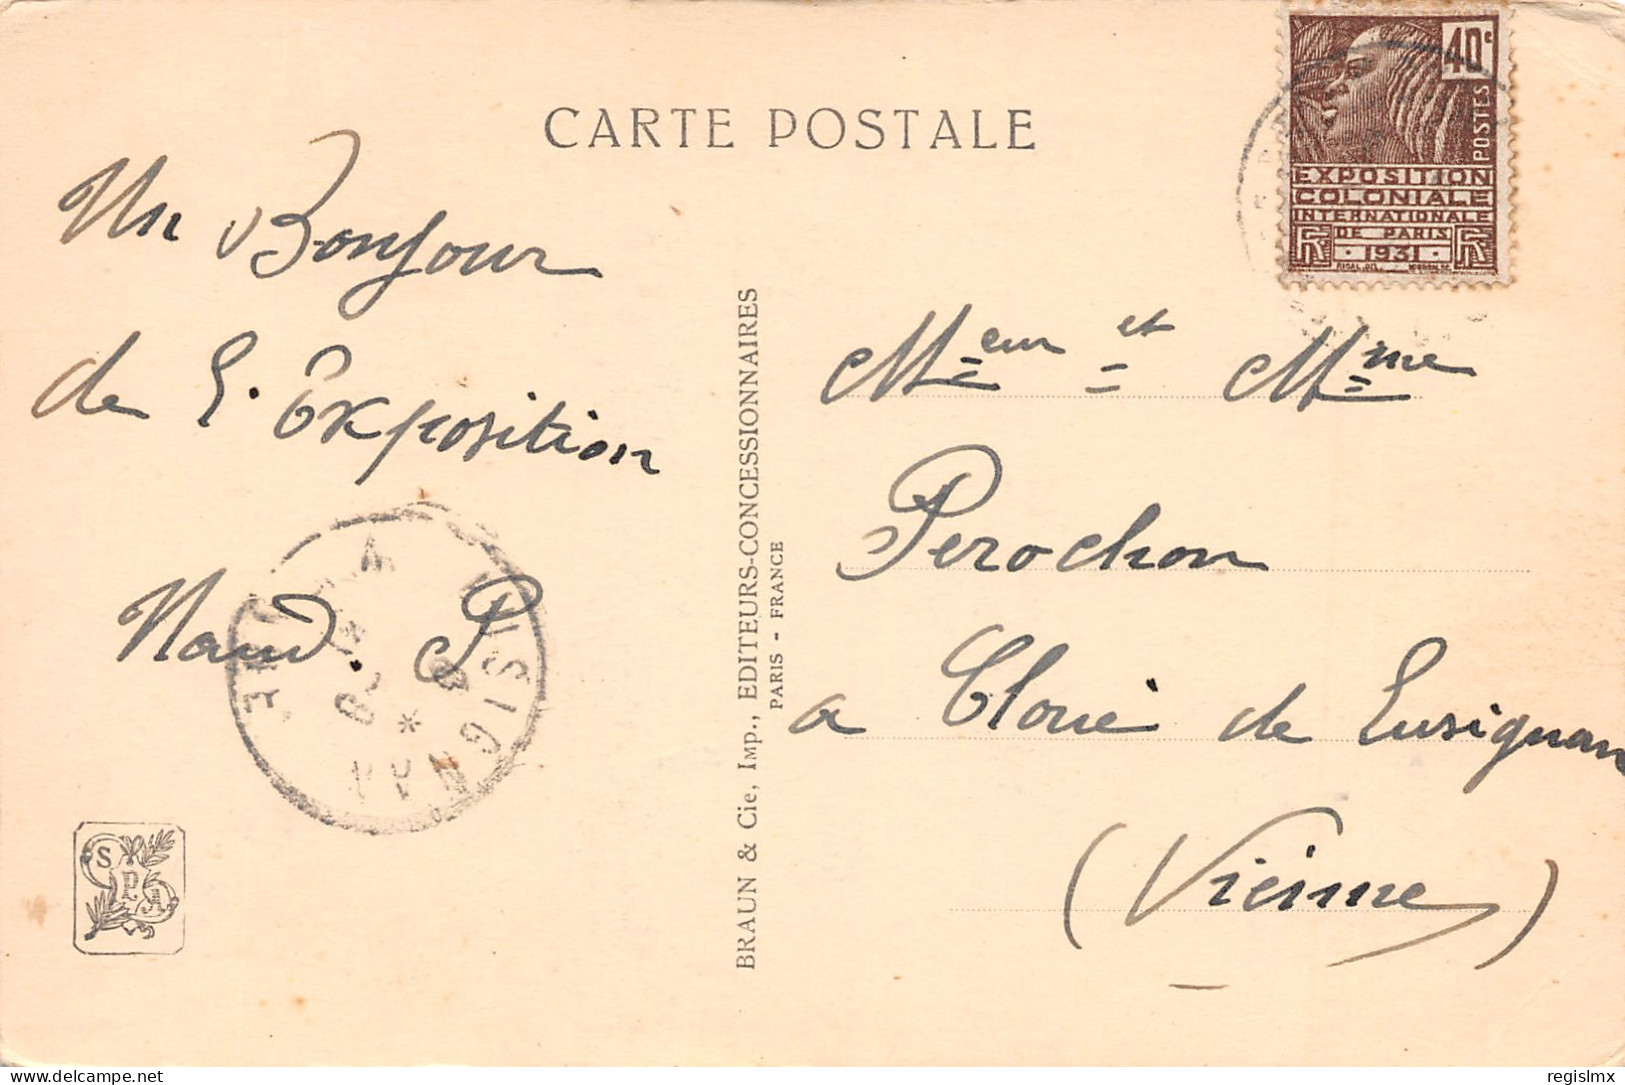 CARTE POSTALE
40c
POSTES
EXPOSITION
COLONIALE
INTERNATIONALE
DE PARIS
1931
RF RF
Un Bonjour
de l'Exposition
Naud P
Meur et Mme
Perochon
a Cloué de Lusignan
(Vienne)
BRAUN & Cie, IMP., EDITEURS-CONCESSIONNAIRES
PARIS - FRANCE
LUSIGNAN
SPA
regislmx